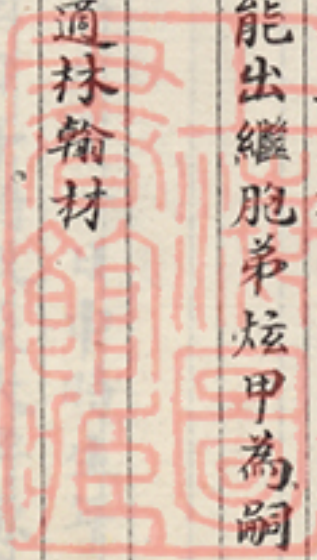 能出繼胞弟炫甲為嗣
適林翰材